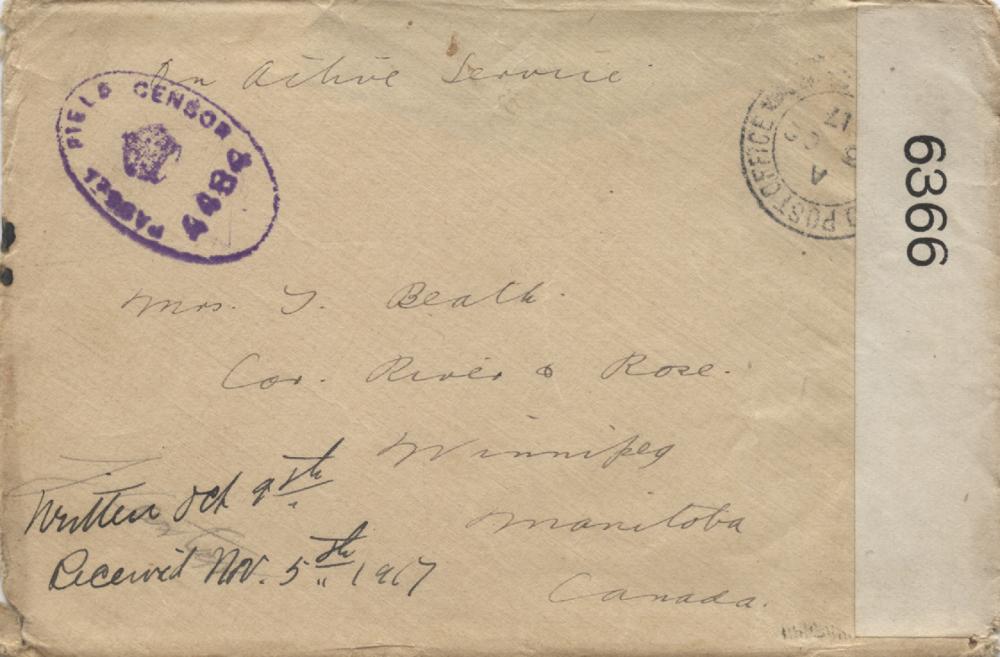 On Active Service
PASSED FIELD CENSOR
4484
D POST OFFICE
A
17
6366
Mrs. T. Beath.
Cor. River & Rose.
Winnipeg
Manitoba
Canada.
Written Oct 9th
Received Nov. 5th 1917